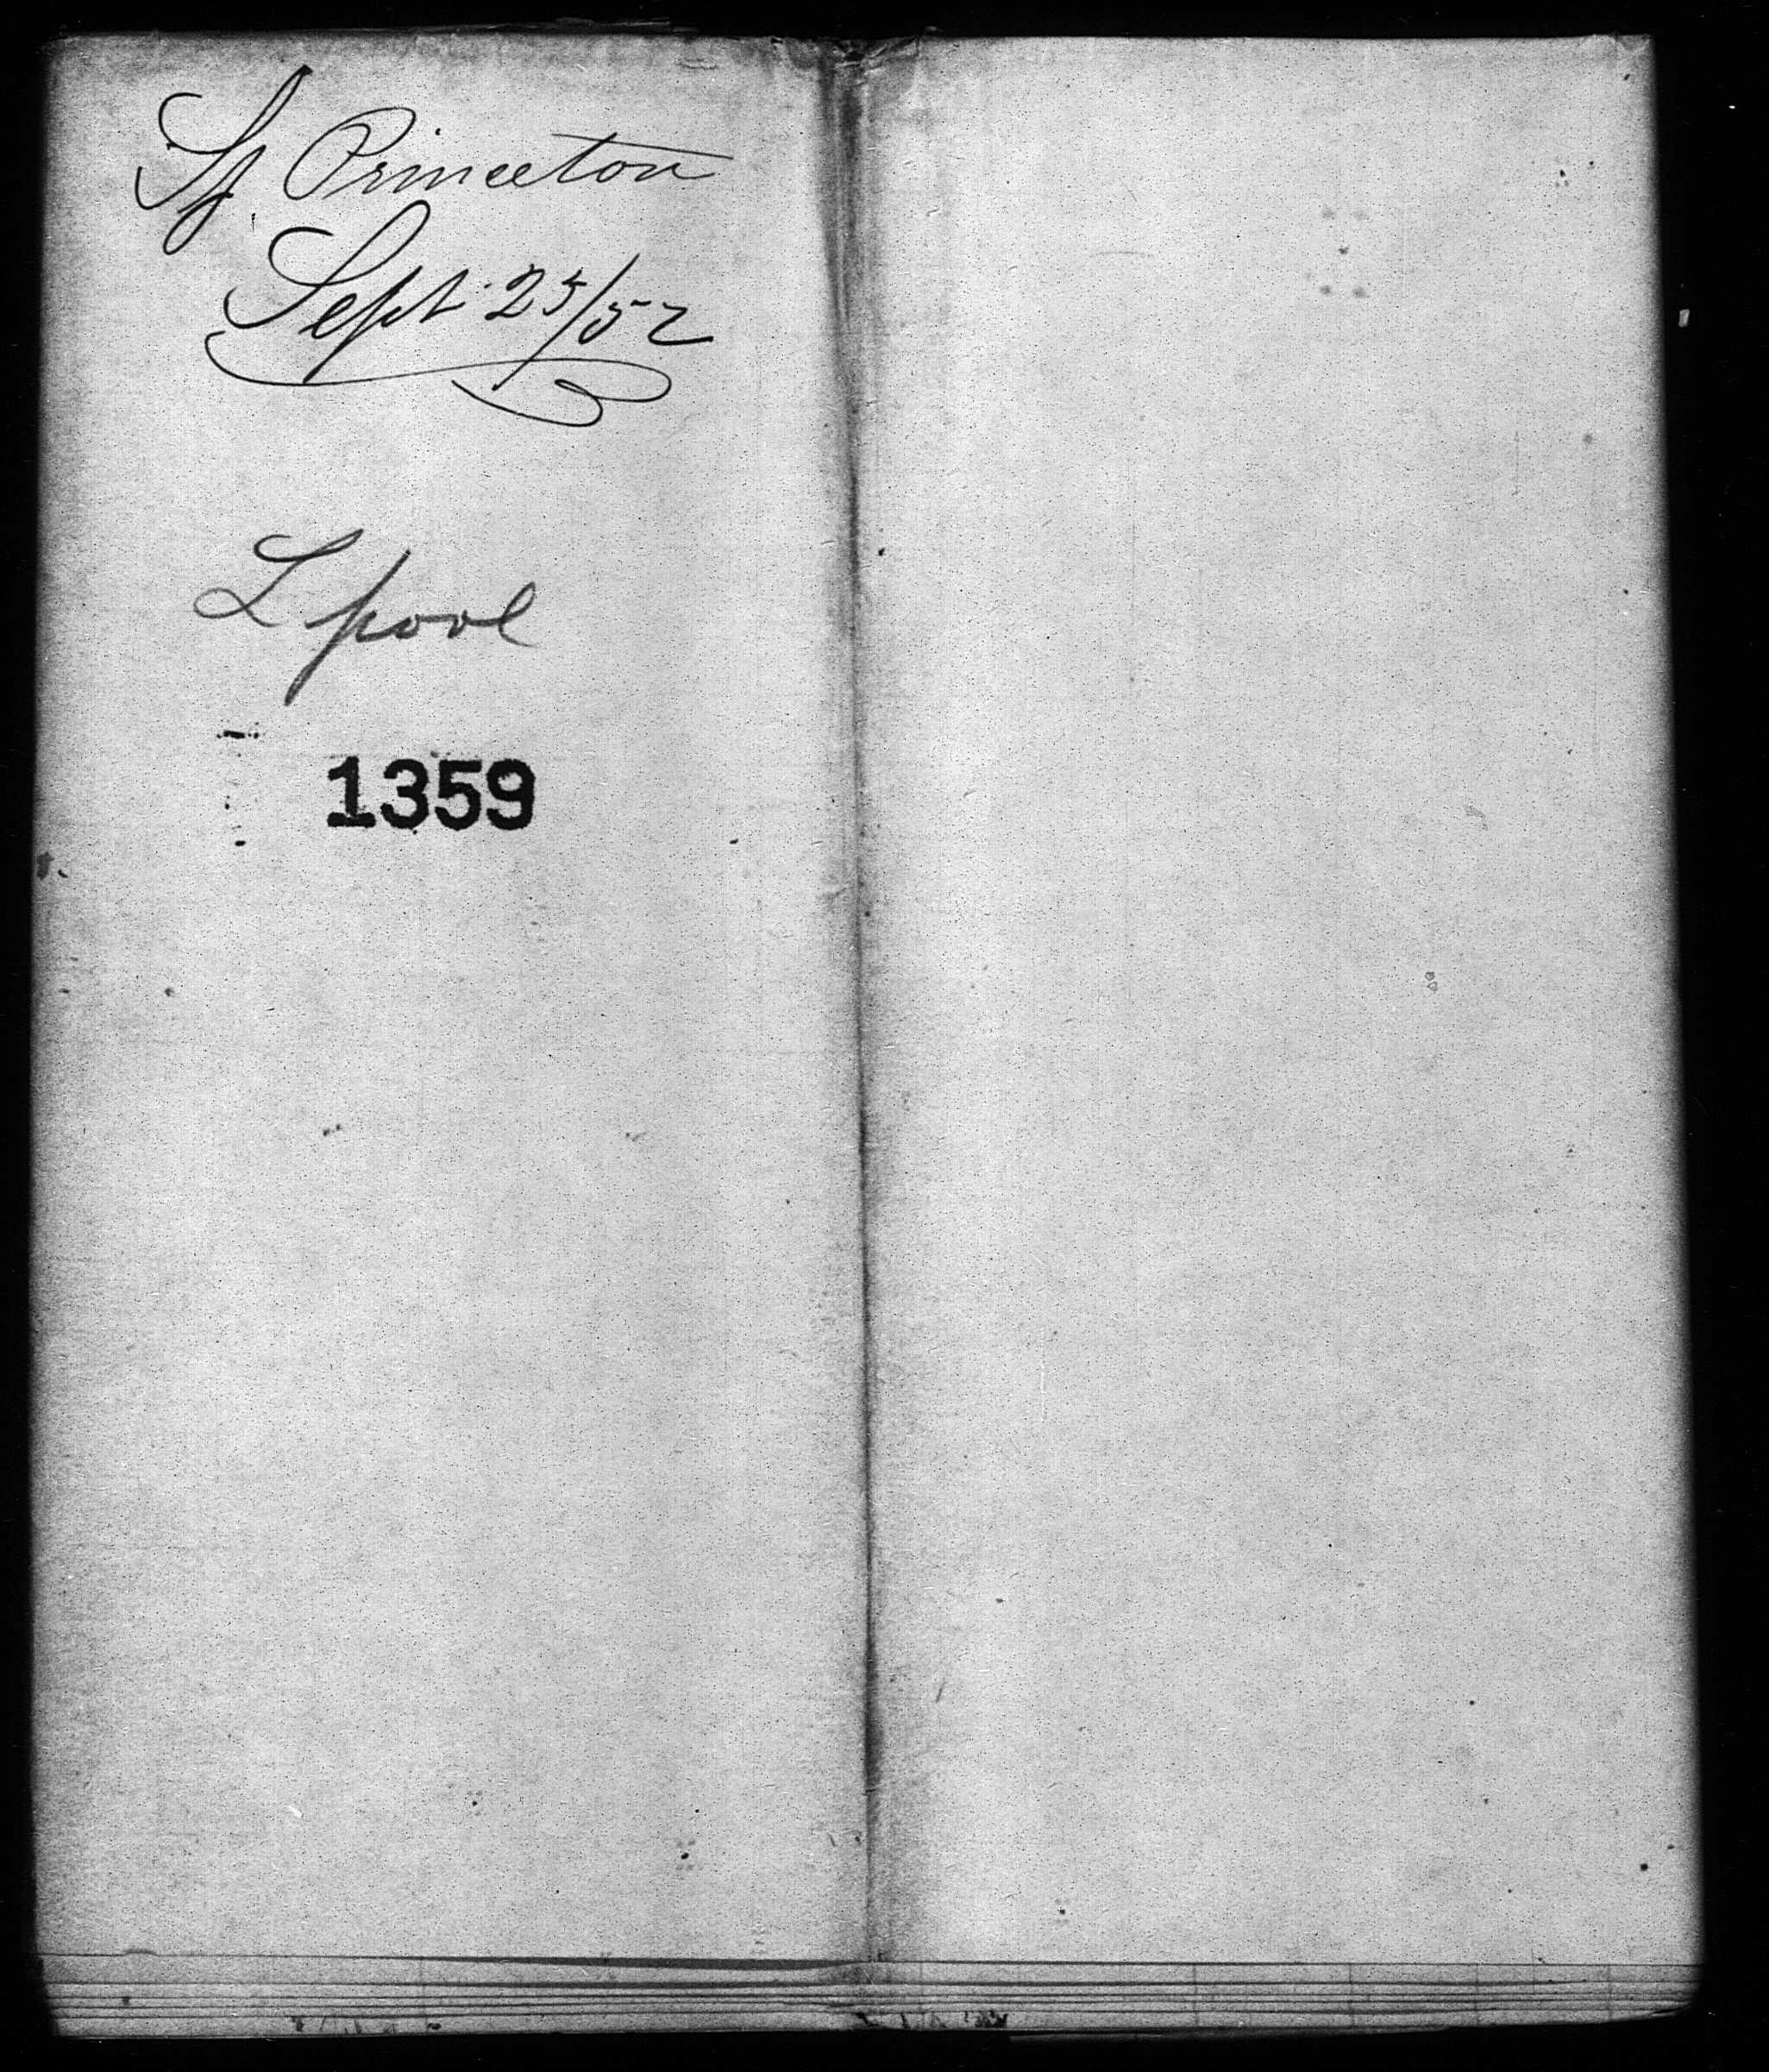 Sp Princeton
Sept 25/52
L pool
1359